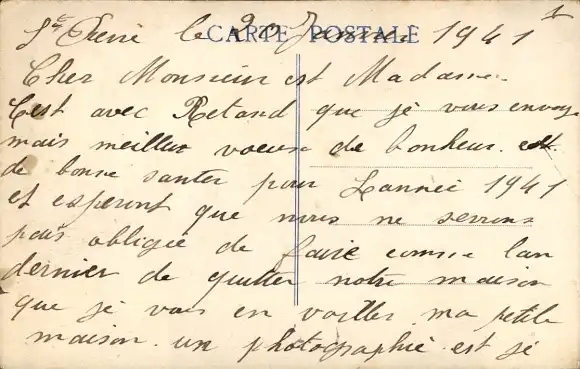 CARTE POSTALE
Ste Péne le 20 Janvier 1941
Cher Monsieur est Madame
C'est avec Retard que jé vous envoye
mais meillur voeuse de bonheur. est
de bonne santer pour L'année 1941
et esperent que nous ne serrons
pas obligée de faire comme l'an
dernier de quitter notre maison
que jé vous en voiller ma petite
maison. un photographié est jé